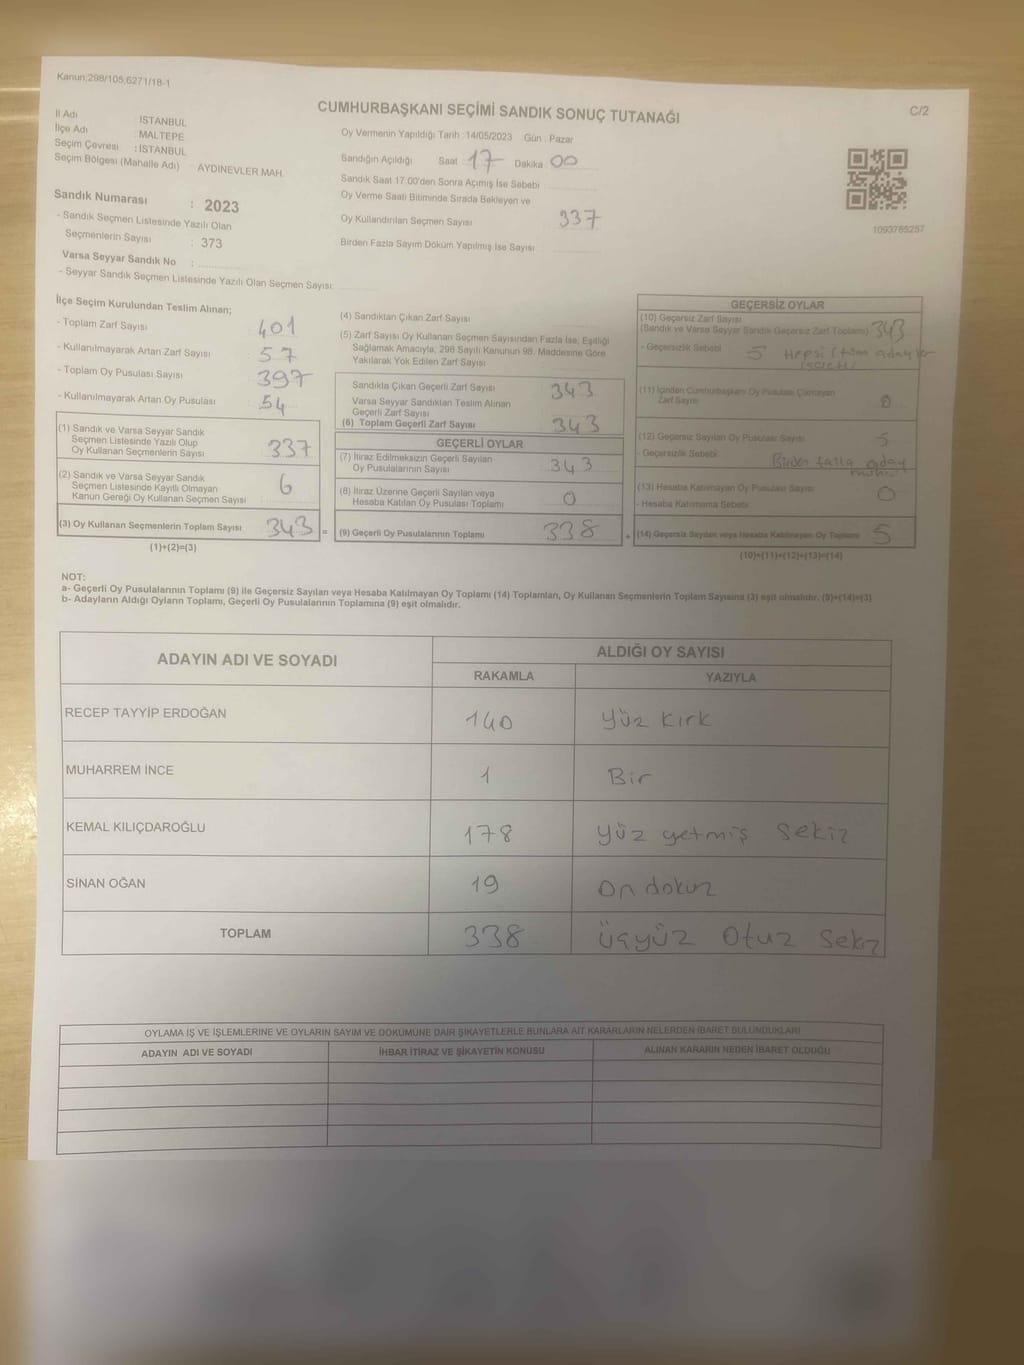 Kanun;298/105;6271/18-1
C/2
CUMHURBAŞKANI SEÇİMİ SANDIK SONUÇ TUTANAĞI
İl Adı : İSTANBUL
İlçe Adı : MALTEPE
Seçim Çevresi : İSTANBUL
Seçim Bölgesi (Mahalle Adı) : AYDINEVLER MAH.
Sandık Numarası : 2023
- Sandık Seçmen Listesinde Yazılı Olan
Seçmenlerin Sayısı : 373
Varsa Seyyar Sandık No :
- Seyyar Sandık Seçmen Listesinde Yazılı Olan Seçmen Sayısı:
Oy Vermenin Yapıldığı Tarih :14/05/2023 Gün : Pazar
Sandığın Açıldığı Saat 17 Dakika 00
Sandık Saat 17:00'den Sonra Açımış İse Sebebi
Oy Verme Saati Bitiminde Sırada Bekleyen ve
Oy Kullandırılan Seçmen Sayısı 337
Birden Fazla Sayım Döküm Yapılmış İse Sayısı
1093765257
İlçe Seçim Kurulundan Teslim Alınan;
- Toplam Zarf Sayısı 401
- Kullanılmayarak Artan Zarf Sayısı 57
- Toplam Oy Pusulası Sayısı 397
- Kullanılmayarak Artan Oy Pusulası 54
(1) Sandık ve Varsa Seyyar Sandık
Seçmen Listesinde Yazılı Olup
Oy Kullanan Seçmenlerin Sayısı 337
(2) Sandık ve Varsa Seyyar Sandık
Seçmen Listesinde Kayıtlı Olmayan
Kanun Gereği Oy Kullanan Seçmen Sayısı 6
(3) Oy Kullanan Seçmenlerin Toplam Sayısı 343 =
(1)+(2)=(3)
(4) Sandıktan Çıkan Zarf Sayısı
(5) Zarf Sayısı Oy Kullanan Seçmen Sayısından Fazla İse, Eşitliği
Sağlamak Amacıyla, 298 Sayılı Kanunun 98. Maddesine Göre
Yakılarak Yok Edilen Zarf Sayısı
Sandıkta Çıkan Geçerli Zarf Sayısı 343
Varsa Seyyar Sandıktan Teslim Alınan
Geçerli Zarf Sayısı
(6) Toplam Geçerli Zarf Sayısı 343
GEÇERLİ OYLAR
(7) İtiraz Edilmeksizin Geçerli Sayılan
Oy Pusulalarının Sayısı 343
(8) İtiraz Üzerine Geçerli Sayılan veya
Hesaba Katılan Oy Pusulası Toplamı 0
(9) Geçerli Oy Pusulalarının Toplamı 338 +
GEÇERSİZ OYLAR
(10) Geçersiz Zarf Sayısı
(Sandık ve Varsa Seyyar Sandık Geçersiz Zarf Toplamı) 343
- Geçersizlik Sebebi 5 Hepsi (tüm adaylar
(11) İçinden Cumhurbaşkanı Oy Pusulası Çıkmayan
Zarf Sayısı 0
(12) Geçersiz Sayılan Oy Pusulası Sayısı 5
- Geçersizlik Sebebi Birden fazla aday
(13) Hesaba Katılmayan Oy Pusulası Sayısı 0
- Hesaba Katılmama Sebebi
(14) Geçersiz Sayılan veya Hesaba Katılmayan Oy Toplamı 5
(10)+(11)+(12)+(13)=(14)
NOT:
a- Geçerli Oy Pusulalarının Toplamı (9) ile Geçersiz Sayılan veya Hesaba Katılmayan Oy Toplamı (14) Toplamları, Oy Kullanan Seçmenlerin Toplam Sayısına (3) eşit olmalıdır. (9)+(14)=(3)
b- Adayların Aldığı Oyların Toplamı, Geçerli Oy Pusulalarının Toplamına (9) eşit olmalıdır.
ADAYIN ADI VE SOYADI ALDIĞI OY SAYISI
RAKAMLA YAZIYLA
RECEP TAYYİP ERDOĞAN 140 Yüz Kırk
MUHARREM İNCE 1 Bir
KEMAL KILIÇDAROĞLU 178 Yüz yetmiş Sekiz
SİNAN OĞAN 19 On dokuz
TOPLAM 338 üçyüz Otuz Sekiz
OYLAMA İŞ VE İŞLEMLERİNE VE OYLARIN SAYIM VE DÖKÜMÜNE DAİR ŞİKAYETLERLE BUNLARA AİT KARARLARIN NELERDEN İBARET BULUNDUKLARI
ADAYIN ADI VE SOYADI İHBAR İTİRAZ VE ŞİKAYETİN KONUSU ALINAN KARARIN NEDEN İBARET OLDUĞU